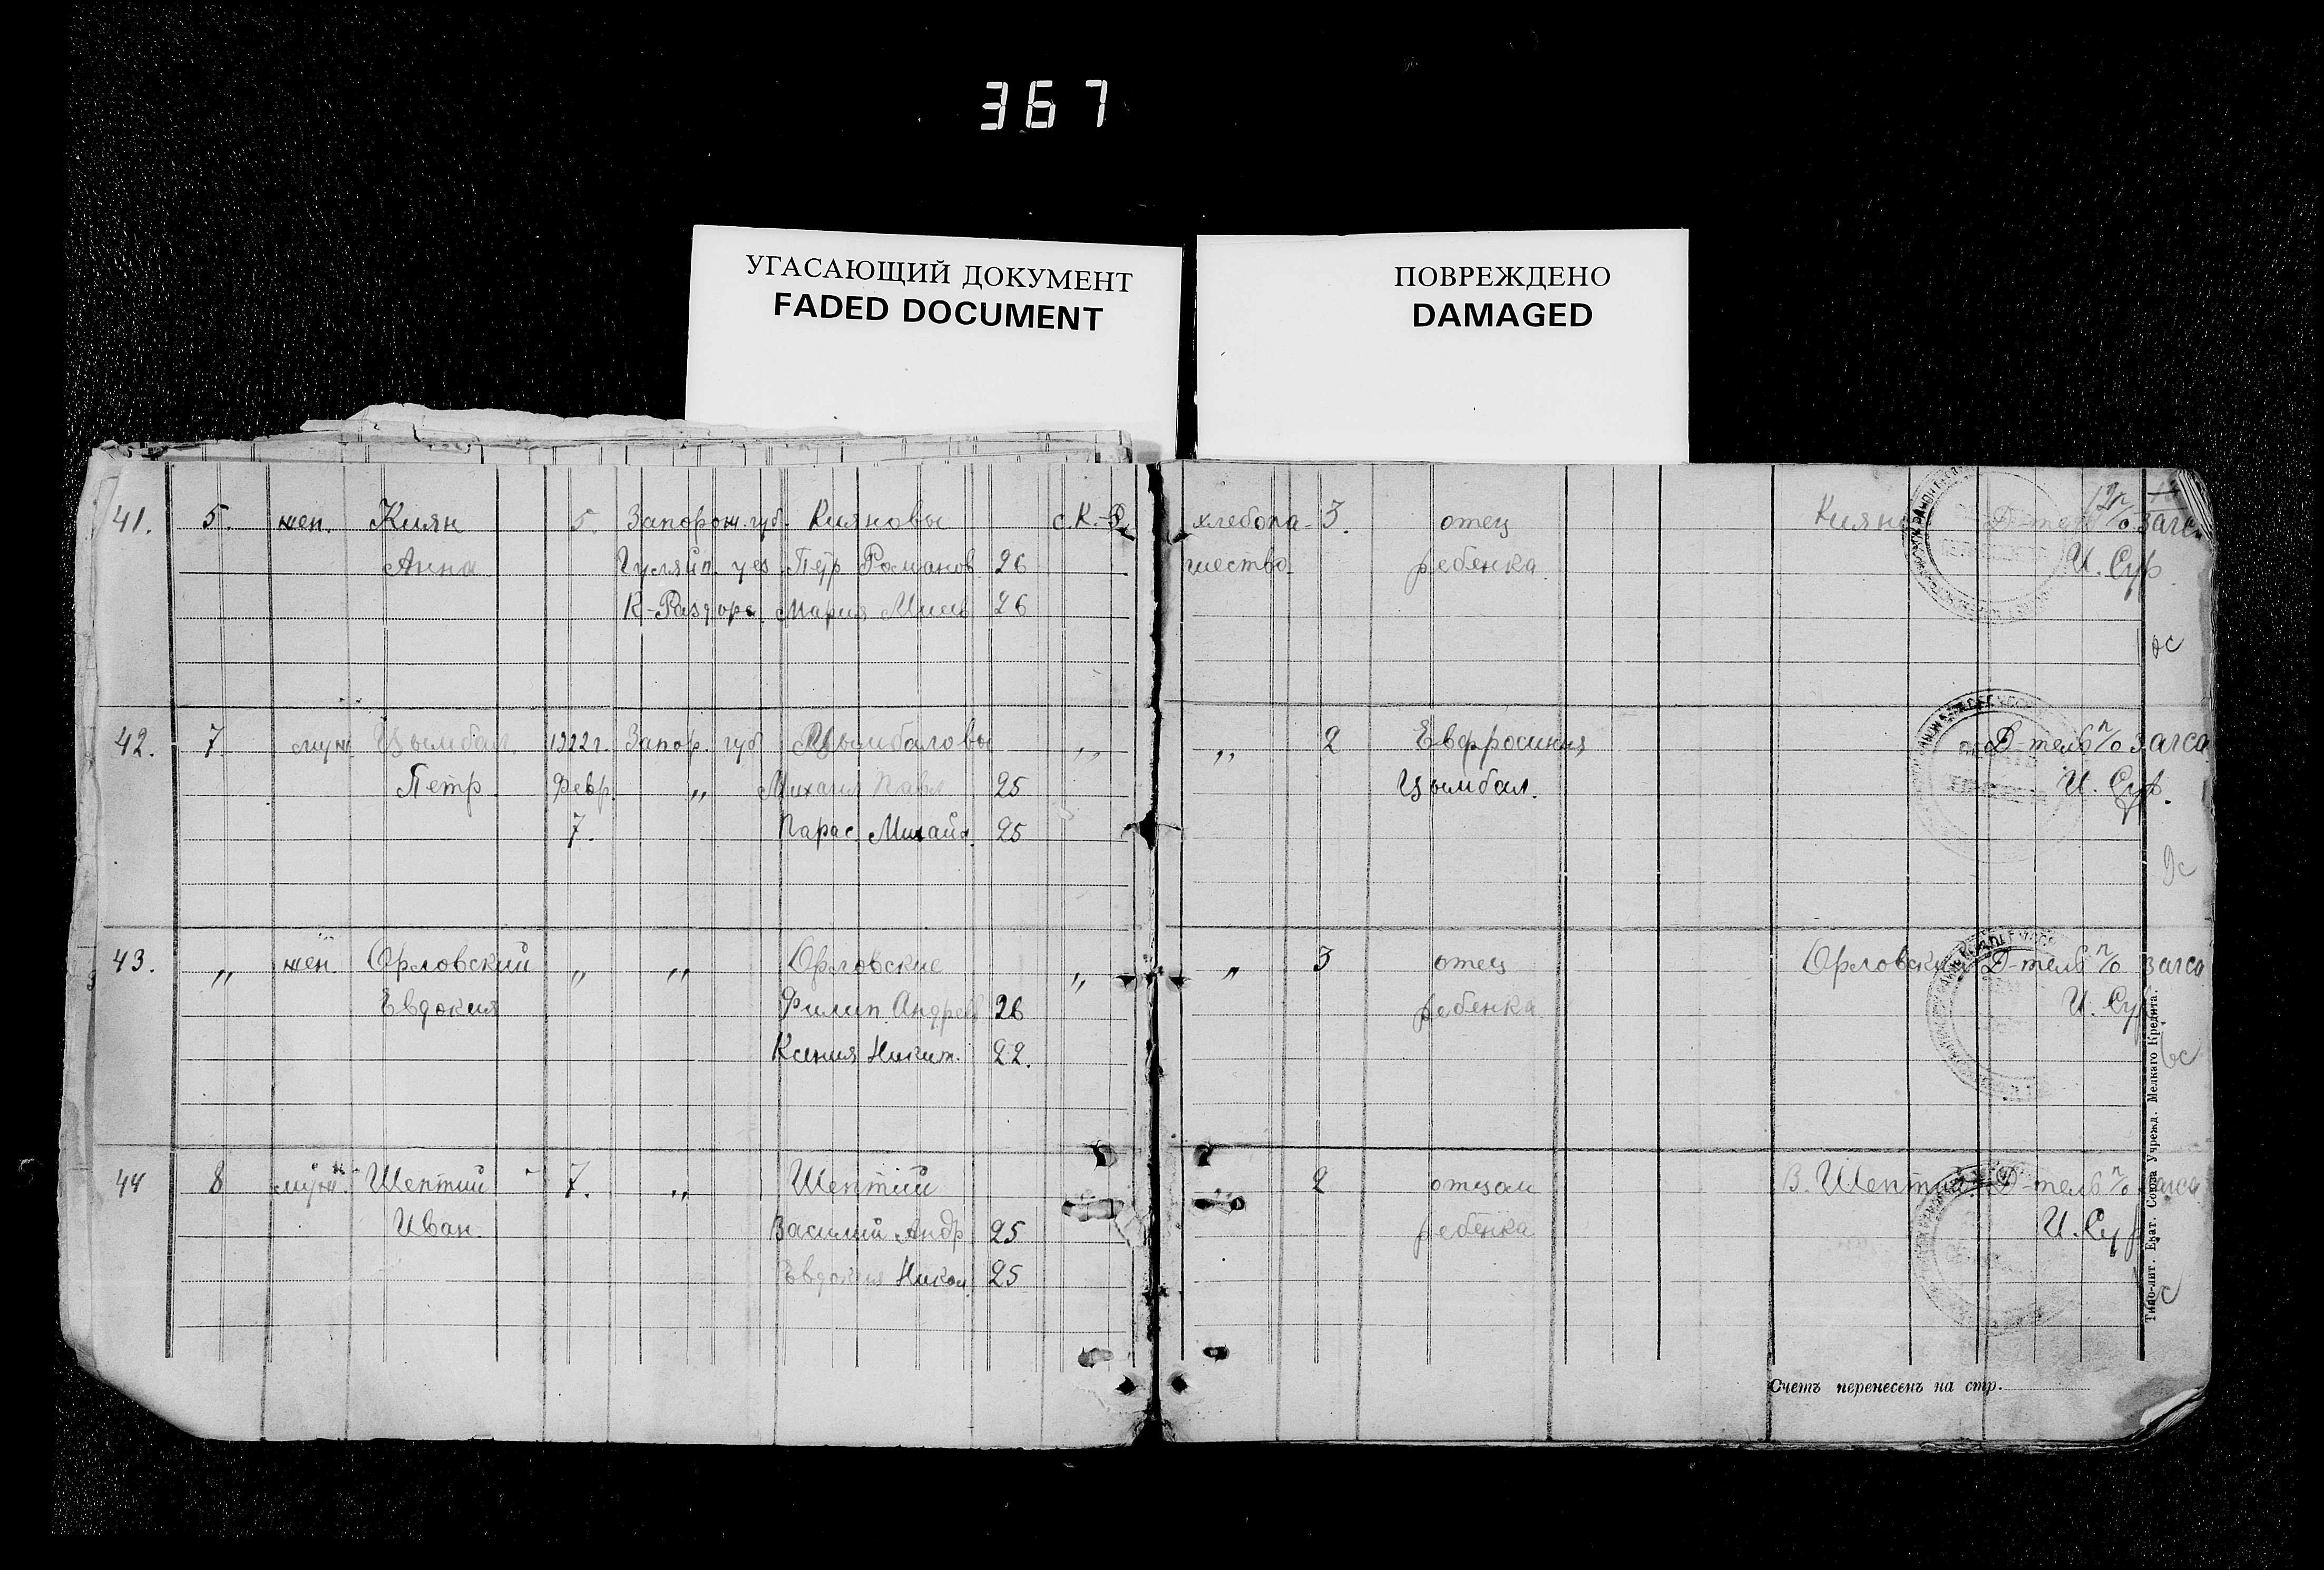 367
УГАСАЮЩИЙ ДОКУМЕНТ
FADED DOCUMENT
ПОВРЕЖДЕНО
DAMAGED
41. 5. жен. Киян 5. Запорож. губ. Кияновы с. К.-Р. хлебопа- 3. отец Киян Д-тель п/о загса
Анна Гуляйп. уез Петр Романов 26 шество. ребенка. И. Сур
К-Раздоры Мария 26
42. 7. муж Цымбал 1922г. Запор. губ Цымбаловы ,, ,, 2 Евфросиния Д-тель п/о загса
Петр Февр. ,, Михаил Павл 25 Цымбал. И. Сур.
7. ,, Парас. Михайл. 25
43. ,, жен. Орловский ,, ,, Орловские ,, ,, 3 отец Орловский Д-тель п/о загса
Евдокия Филип. Андреев 26 ребенка. И. Сур
Ксения Никит. 22.
44 8 муж. Шептий 7. ,, Шептии 2 отцом В. Шептий Д-тель п/о загса
Иван. Василий Андр 25 ребенка И. Сур
Евдокия Никол 25
Счетъ перенесенъ на стр.
Типо-лит. Екат. Союза Учрежд. Мелкаго Кредита.